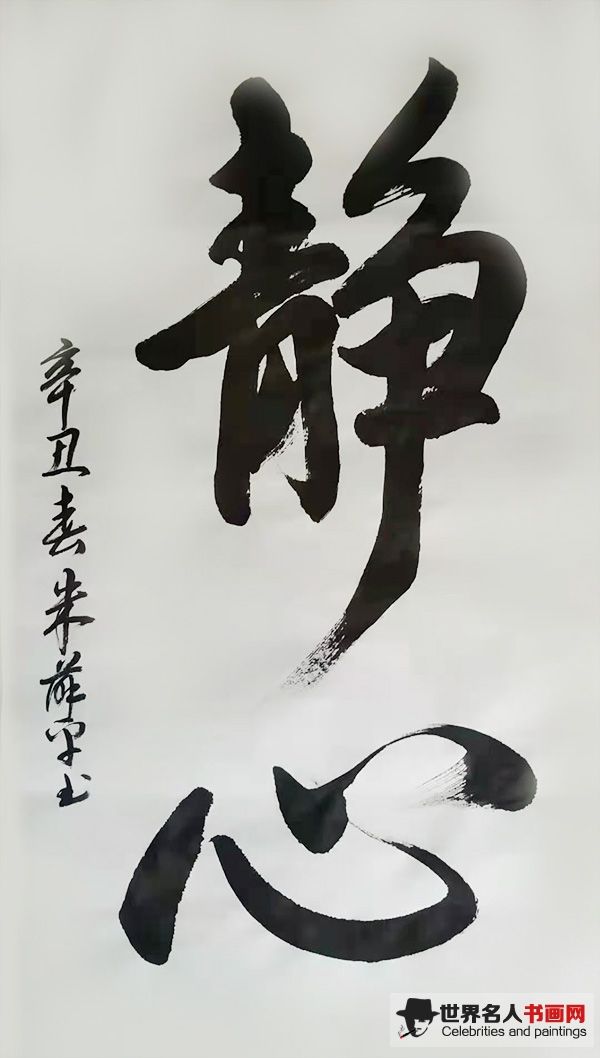 静心
辛丑春朱薛字书
世界名人书画网
Celebrities and paintings